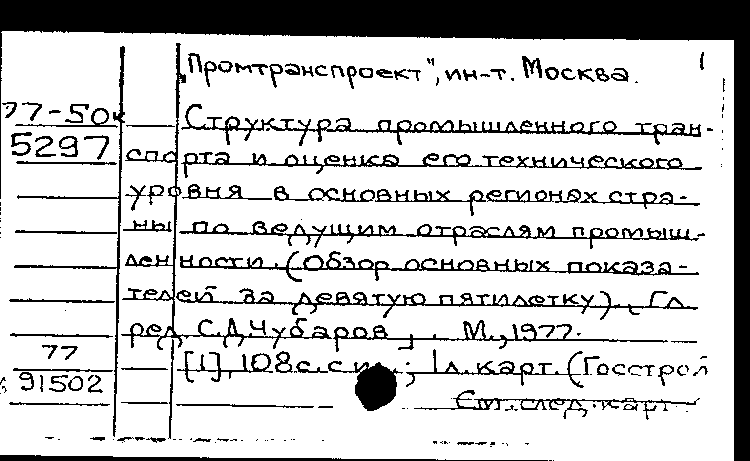 1
„Промтранспроект", ин-т. Москва.
77-50к
Структура промышленного тран-
5297
спорта и оценка его технического
уровня в основных регионах стра-
ны по ведущим отраслям промыш-
ленности. (Обзор основных показа-
телей за девятую пятилетку). Гл.
ред. С.Д. Чубаров. М., 1977.
77
[1], 108 с. с ил.; 1 л. карт. (Госстрой
91502
См. след. карт.